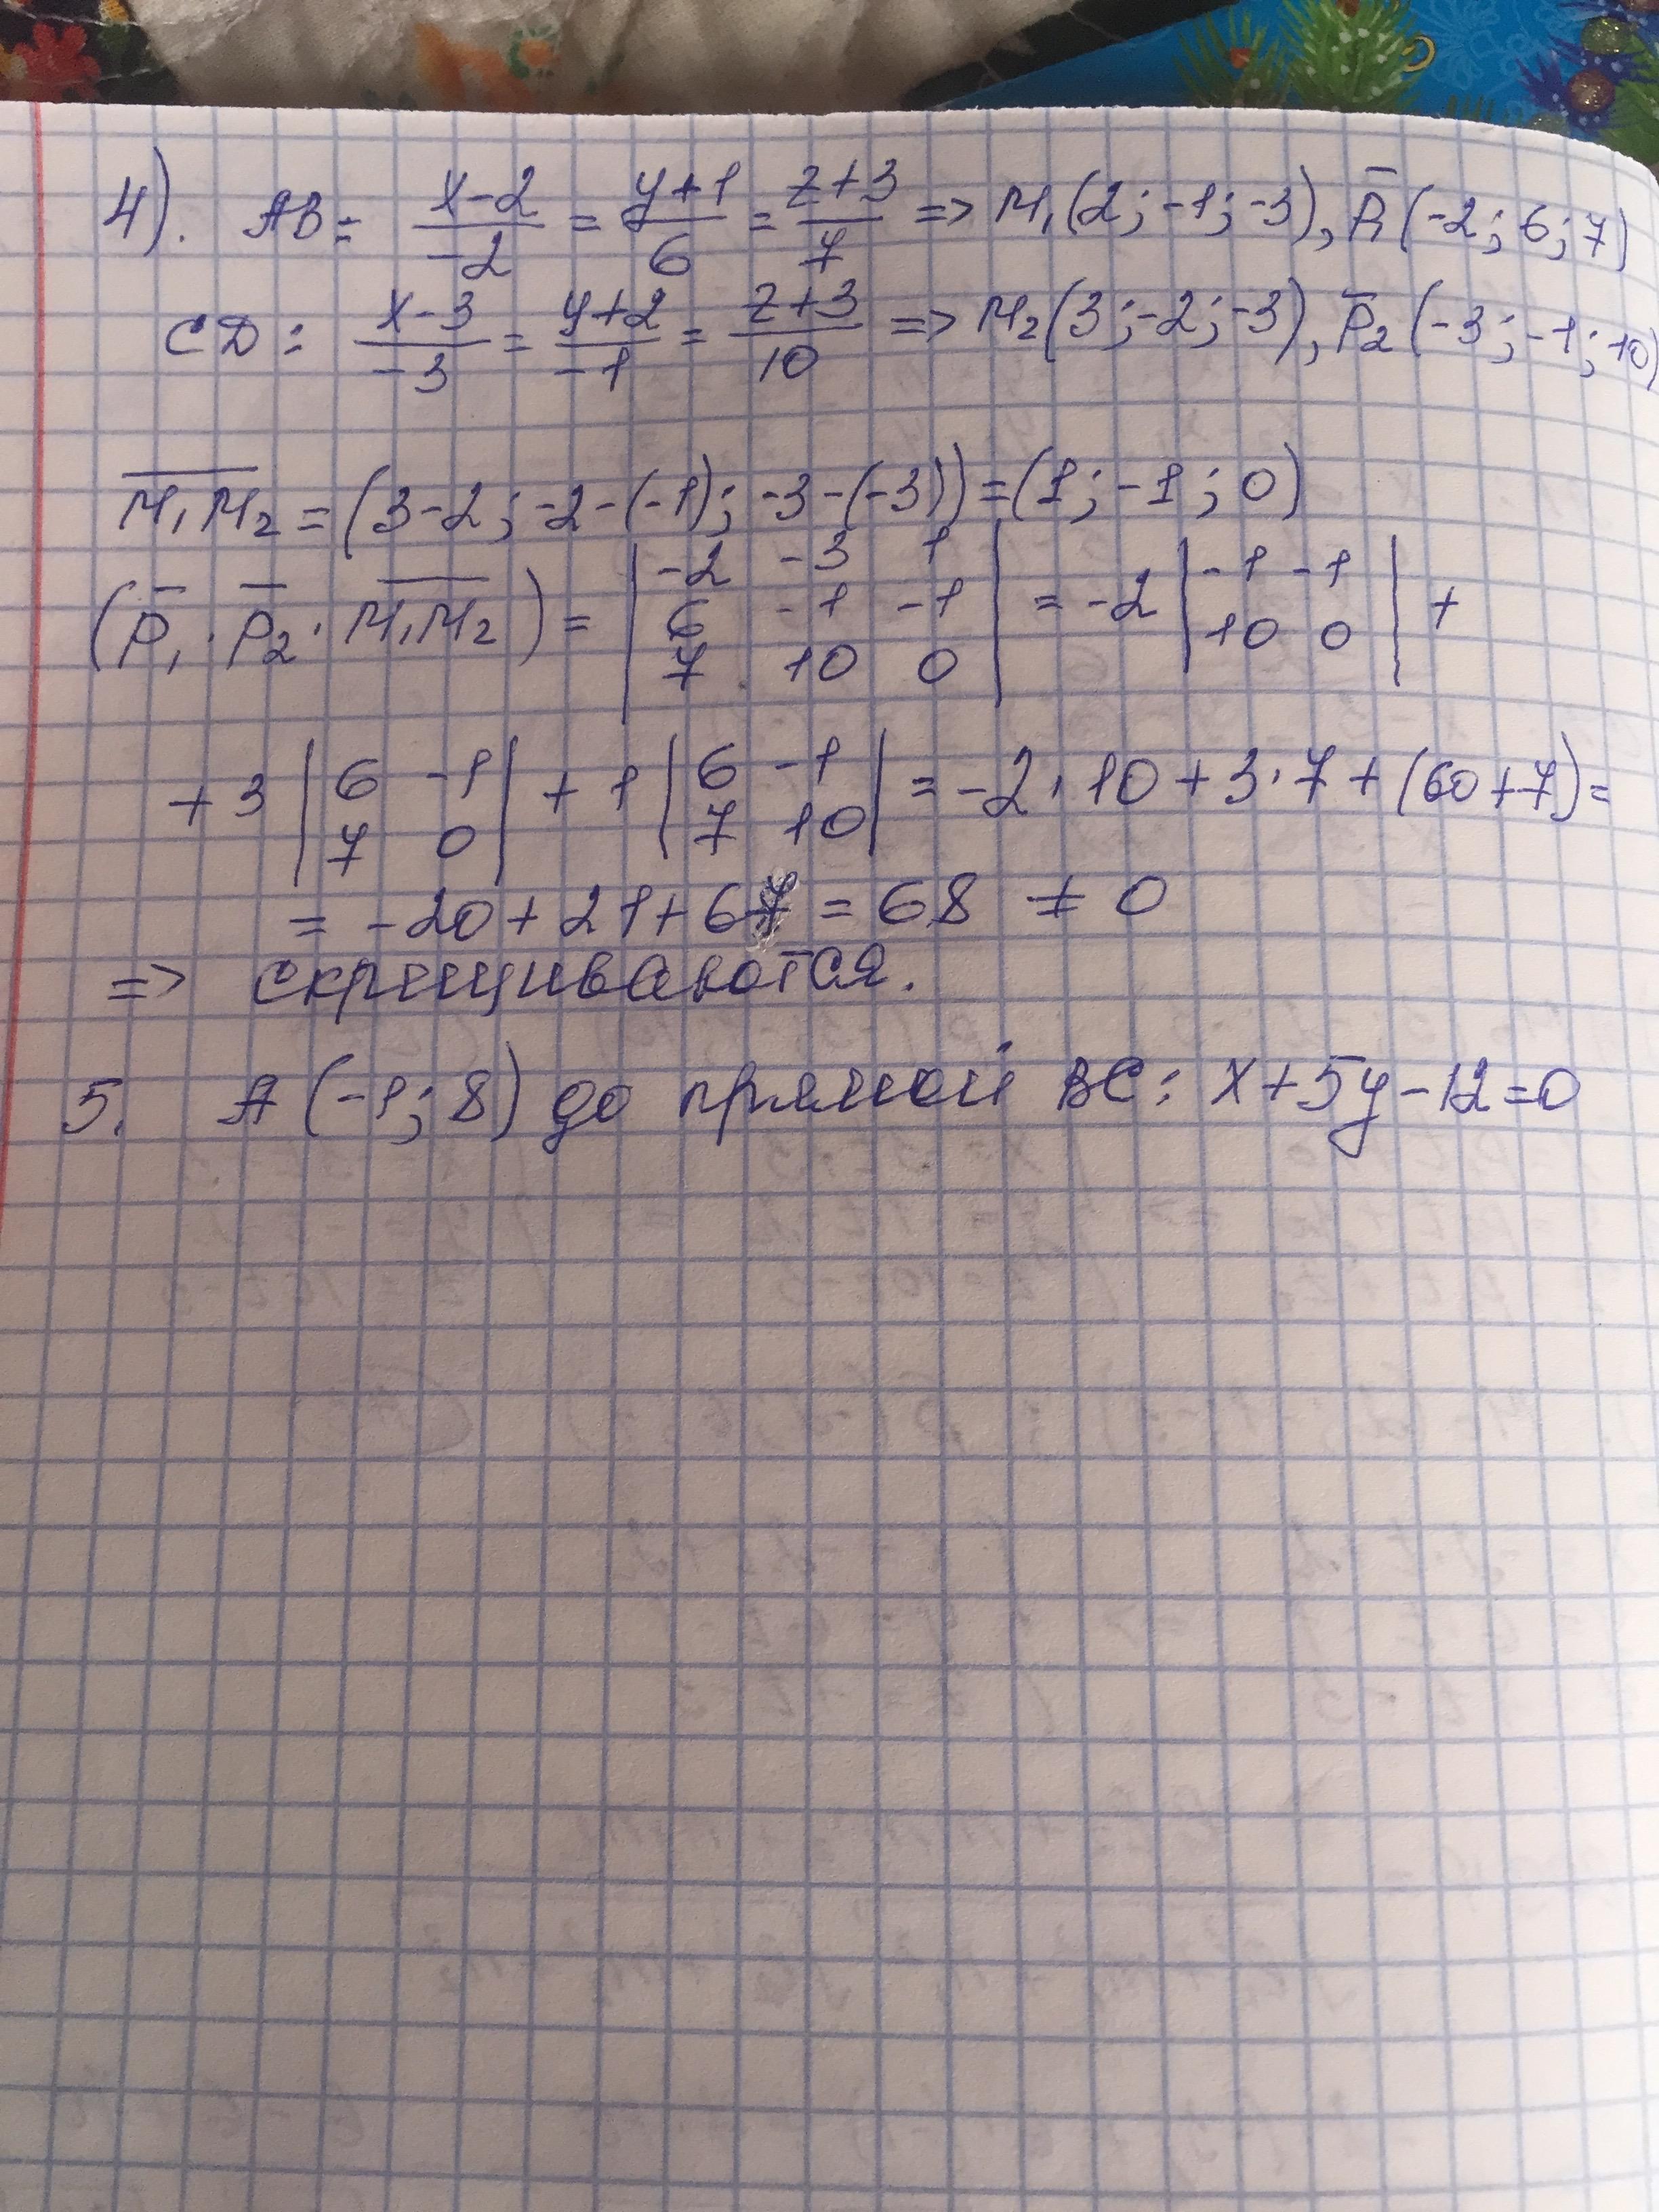 4). AB: (x-2)/(-2) = (y+1)/6 = (z+3)/7 => M₁(2; -1; -3), p̄₁(-2; 6; 7)
CD: (x-3)/(-3) = (y+2)/(-1) = (z+3)/10 => M₂(3; -2; -3), p̄₂(-3; -1; 10)
M₁M₂ = (3-2; -2-(-1); -3-(-3)) = (1; -1; 0)
(p̄₁ · p̄₂ · M₁M₂) = |-2 -3 1; 6 -1 -1; 7 10 0| = -2 |-1 -1; 10 0| +
+ 3 |6 -1; 7 0| + 1 |6 -1; 7 10| = -2 · 10 + 3 · 7 + (60+7) =
= -20 + 21 + 67 = 68 ≠ 0
=> скрещиваются.
5. A (-1; 8) до прямой BC: x+5y-12=0